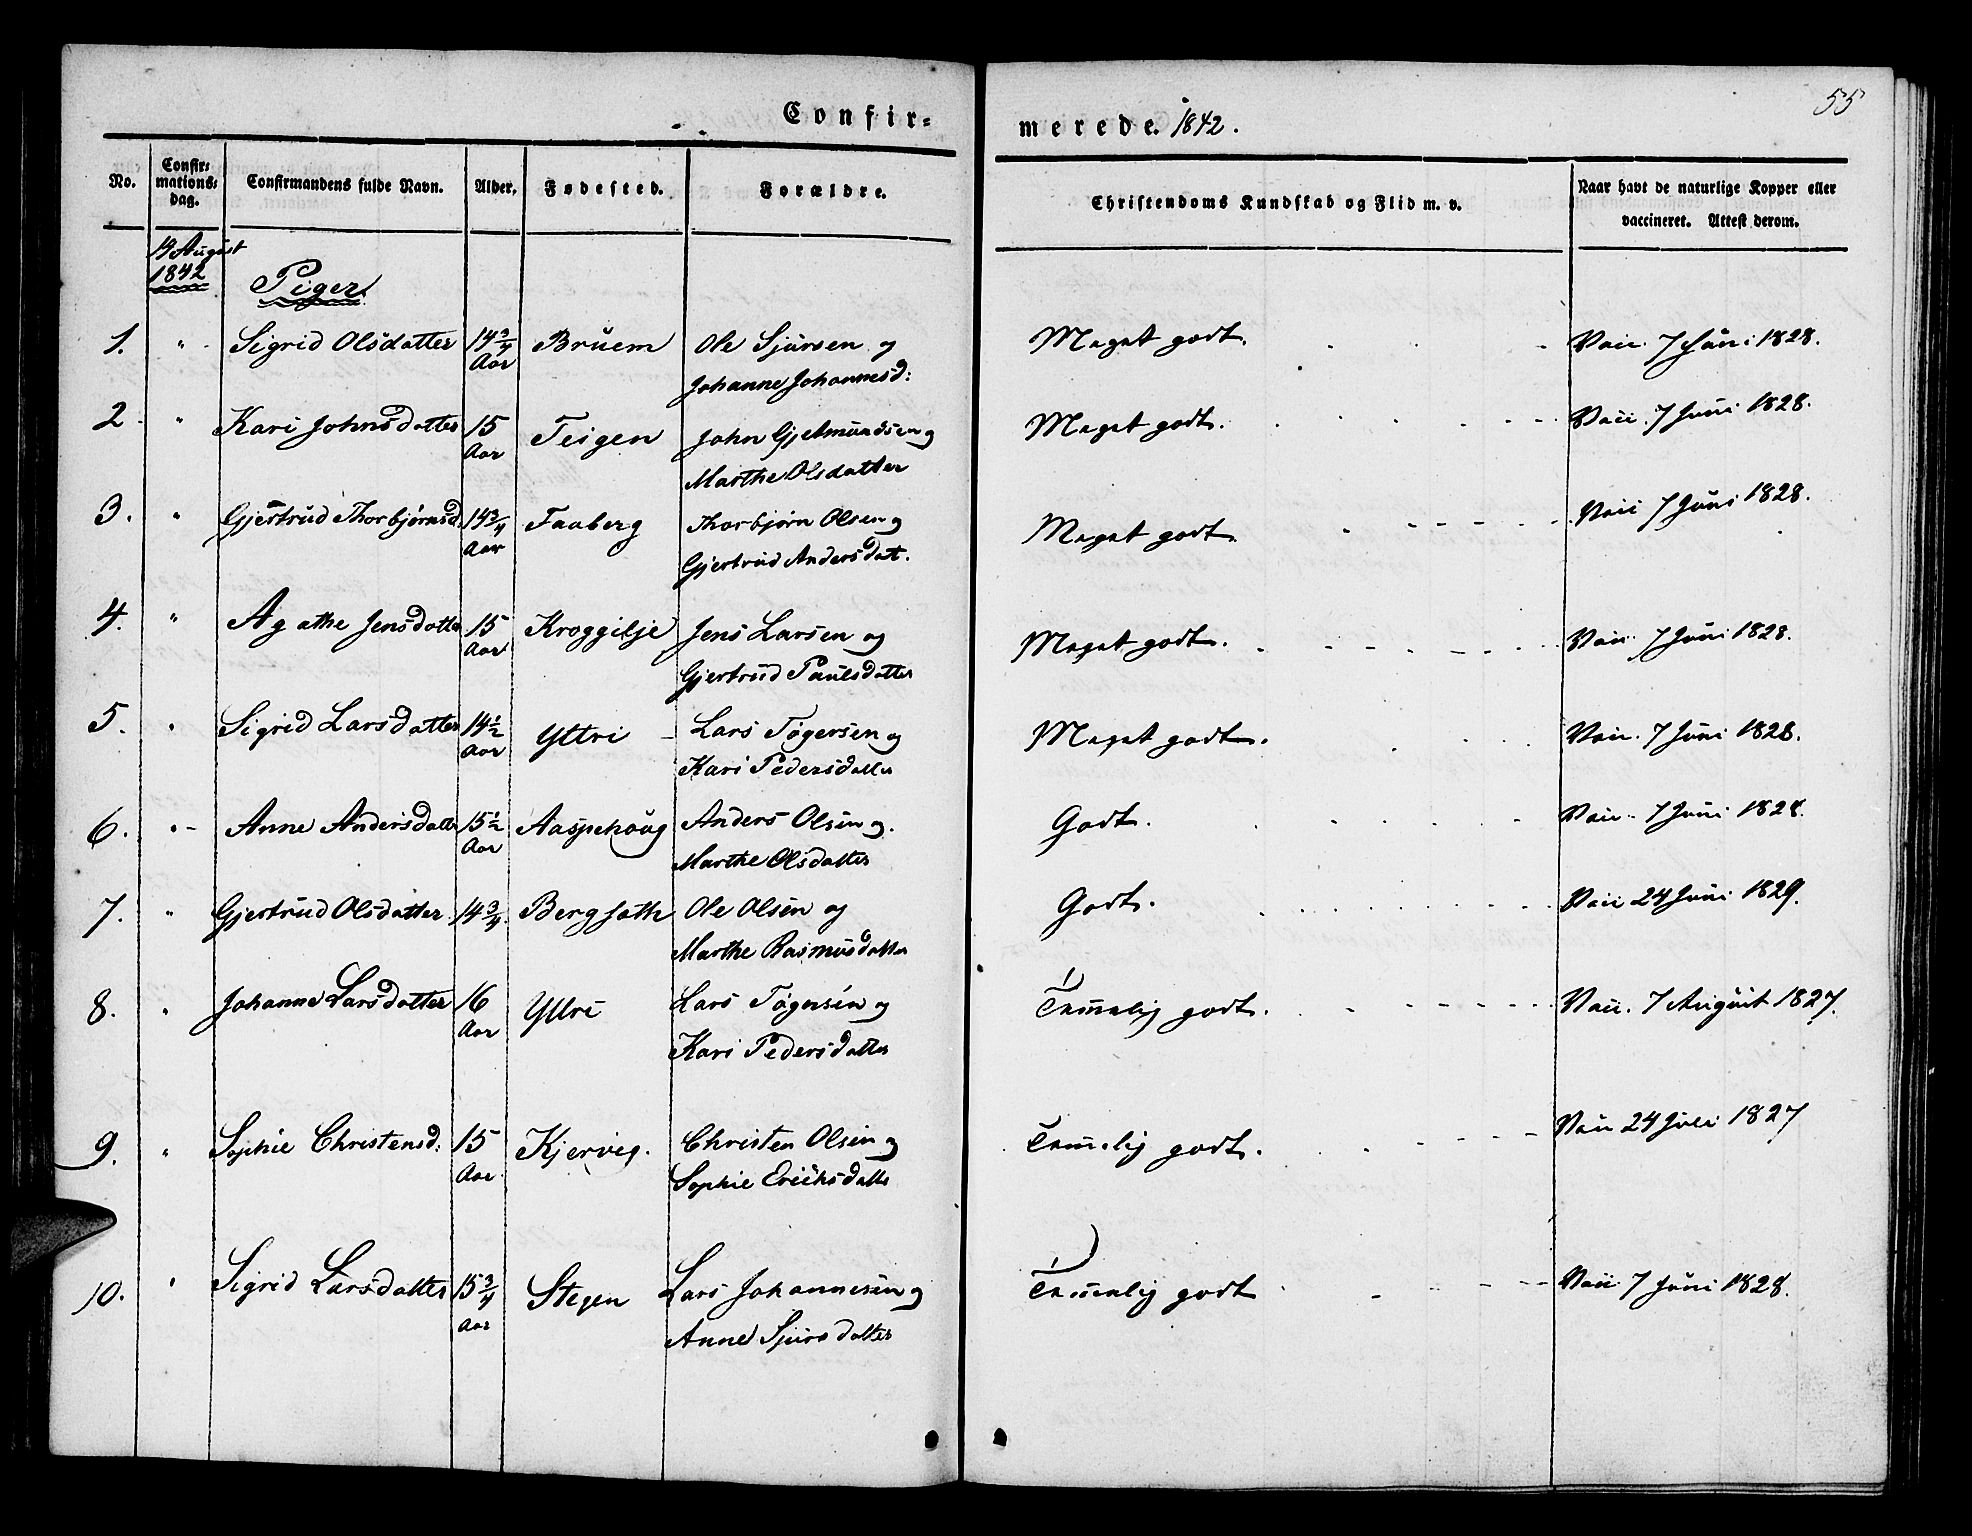 Confir-
merede. 1842.
55
No.
Confir-
mations-
dag.
Confirmandens fulde Navn.
Alder.
Fødested.
Forældre.
Christendoms Kundskab og Flid m. v.
Naar havt de naturlige Kopper eller
vaccineret. Attest derom.
August
1842
Piger
1. " Sigrid Olsdatter 14 3/4 Bruem Ole Sjursen og Meget godt. Vacc. 7 Juni 1828.
Aar Johanne Johannesd:
2 " Kari Johnsdatter 15 Teigen John Gjelmundsen og Meget godt. Vacc. 7 Juni 1828.
Aar Marthe Olsdatter
3. " Gjertrud Thorbjørnsd. 14 3/4 Faaberg Thorbjørn Olsen og Meget godt. Vacc 7 Juni 1828.
Aar Gjertrud Andersdatt.
4. " Agathe Jensdatter 15 Kroggilje Jens Larsen og Meget godt. Vacc. 7 Juni 1828.
Aar Gjertrud Paulsdatter
5. " Sigrid Larsdatter 14 1/2 Yttri Lars Tøgersen og Meget godt. Vacc. 7 Juni 1828.
Aar Kari Pedersdatter
6. " Anne Andersdatter 15 1/2 Aaspehoug Anders Olsen og. Godt. Vacc. 7 Juni 1828.
Aar Marthe Olsdatter
7. " Gjertrud Olsdatter 14 3/4 Bergsæth Ole Olsen og Godt. Vacc 24 Juni 1829.
Marthe Rasmusdatter
8. " Johanne Larsdatter 16 Yttri Lars Tøgersen og Temmelig godt. Vacc. 7 August 1827.
Aar Kari Pedersdatter
9. " Sophie Christensd: 15 Kjervig. Christen Olsen og Temmelig godt. Vacc 24 Juli 1827
Aar Sophie Erichsdatter
10. " Sigrid Larsdatter 15 3/4 Stegen Lars Johannesen og Temmelig godt Vacc 7 Juni 1828.
Aar Anne Sjursdatter